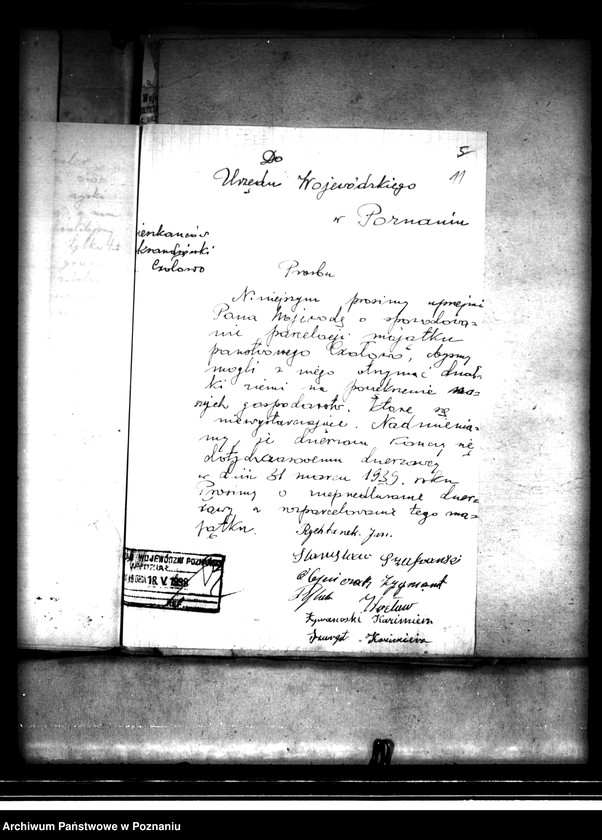 5
11
Do
Urzędu Wojewódzkiego
w Poznaniu
ieszkańców
Czołowo
Prośba
Niniejszym prosimy uprzejmi
Pana Wojewodę o spowodowa-
nie parcelacji majątku
państwowego Czołowo, abyśmy
mogli z niego otrzymać dział-
ki ziemi na powiększenie na-
szych gospodarstw. Które są
niewystarczające. Nadmienia-
my, że dzierżawa kończy się
dotychczasowemu dzierżawcy
w dniu 31 marca 1939. roku
Prosimy o nieprzedłużanie dzier-
żawy a rozparcelowanie tego ma-
jątku.
Rychtarek Jan.
Stanisław
Zygmunt
Wacław
Kazimierz
Kazimierz
WOJEWÓDZKI POZNAŃSKI
WYDZIAŁ
18. V. 1938
Archiwum Państwowe w Poznaniu